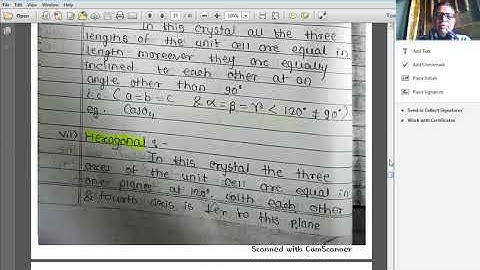 In this crystal all the three
lengths of the unit cell are equal in
length moreover they are equally
inclined to each other at an
angle other than 90°
i.e. (a=b=c & α=β=γ < 120° ≠ 90°)
eg. CaSO4
vii) Hexagonal :-
In this crystal the three
axes of the unit cell are equal in
one plane at 120° with each other
& fourth axis is
to this plane
Scanned with CamScanner
100%
Add Text
Add Checkmark
Place Initials
Place Signature
Send to Collect Signatures
Work with Certificates